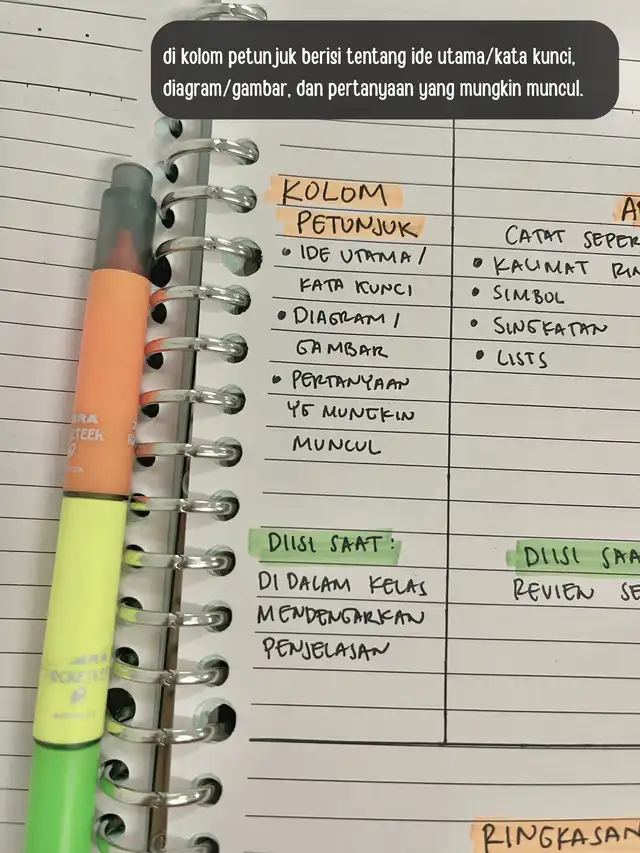 di kolom petunjuk berisi tentang ide utama/kata kunci,
diagram/gambar, dan pertanyaan yang mungkin muncul.
KOLOM
PETUNJUK
• IDE UTAMA /
KATA KUNCI
• DIAGRAM /
GAMBAR
• PERTANYAAN
YG MUNGKIN
MUNCUL
DIISI SAAT:
DI DALAM KELAS
MENDENGARKAN
PENJELASAN
CATAT SEPER
• KALIMAT RIN
• SIMBOL
• SINGKATAN
• LISTS
DIISI SAA
REVIEW SE
RINGKASAN